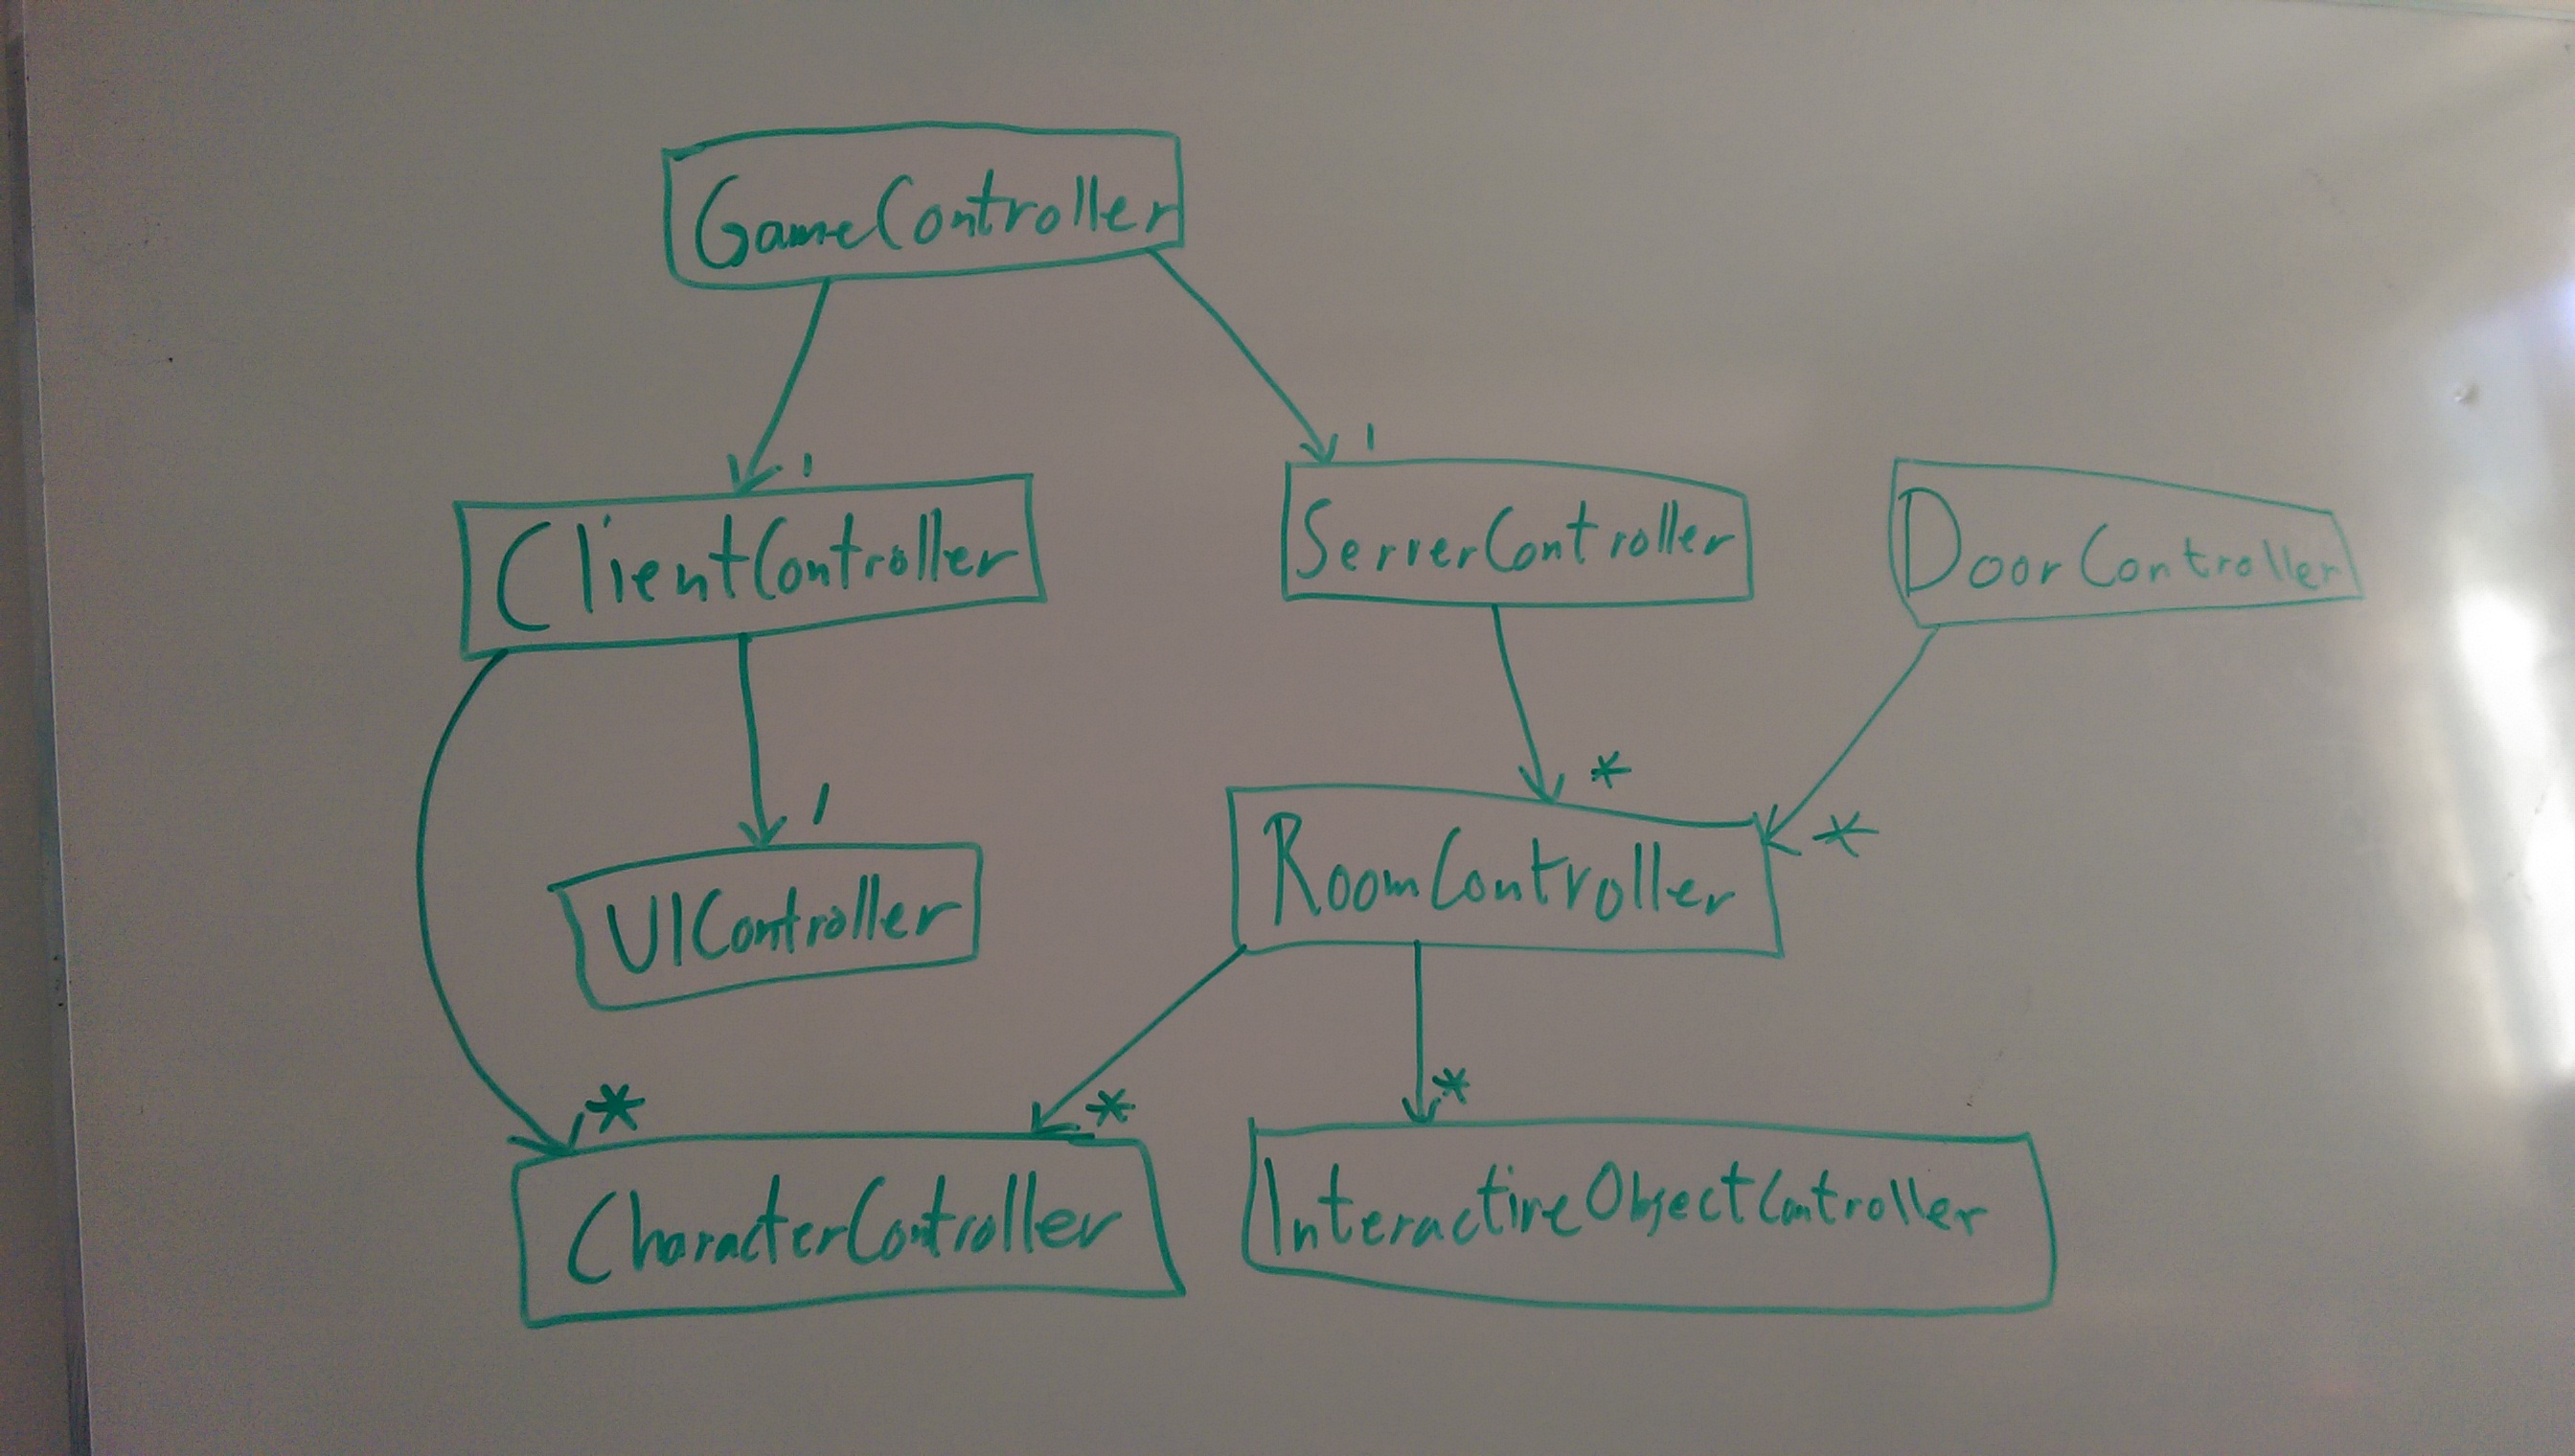 GameController
1
1
ClientController
ServerController
DoorController
*
1
*
UIController
RoomController
*
*
*
CharacterController
InteractiveObjectController